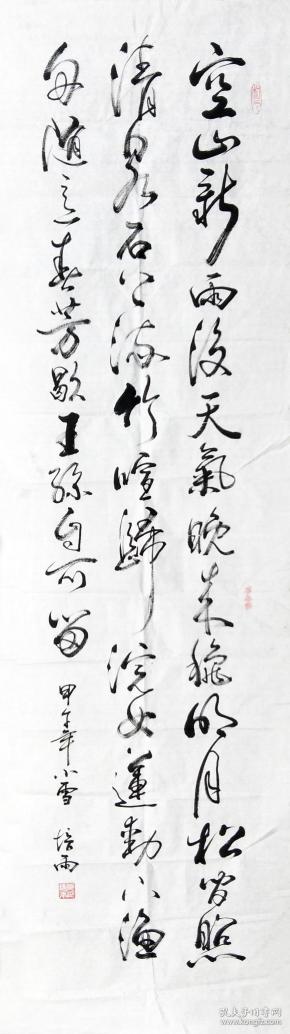 空山新雨後天氣晚来穐明月松间照
清泉石上流竹喧歸浣女蓮動下漁
舟随意春芳歇王孫自可留
甲午年小雪 培雨
孔夫子旧书网
www.kongfz.com